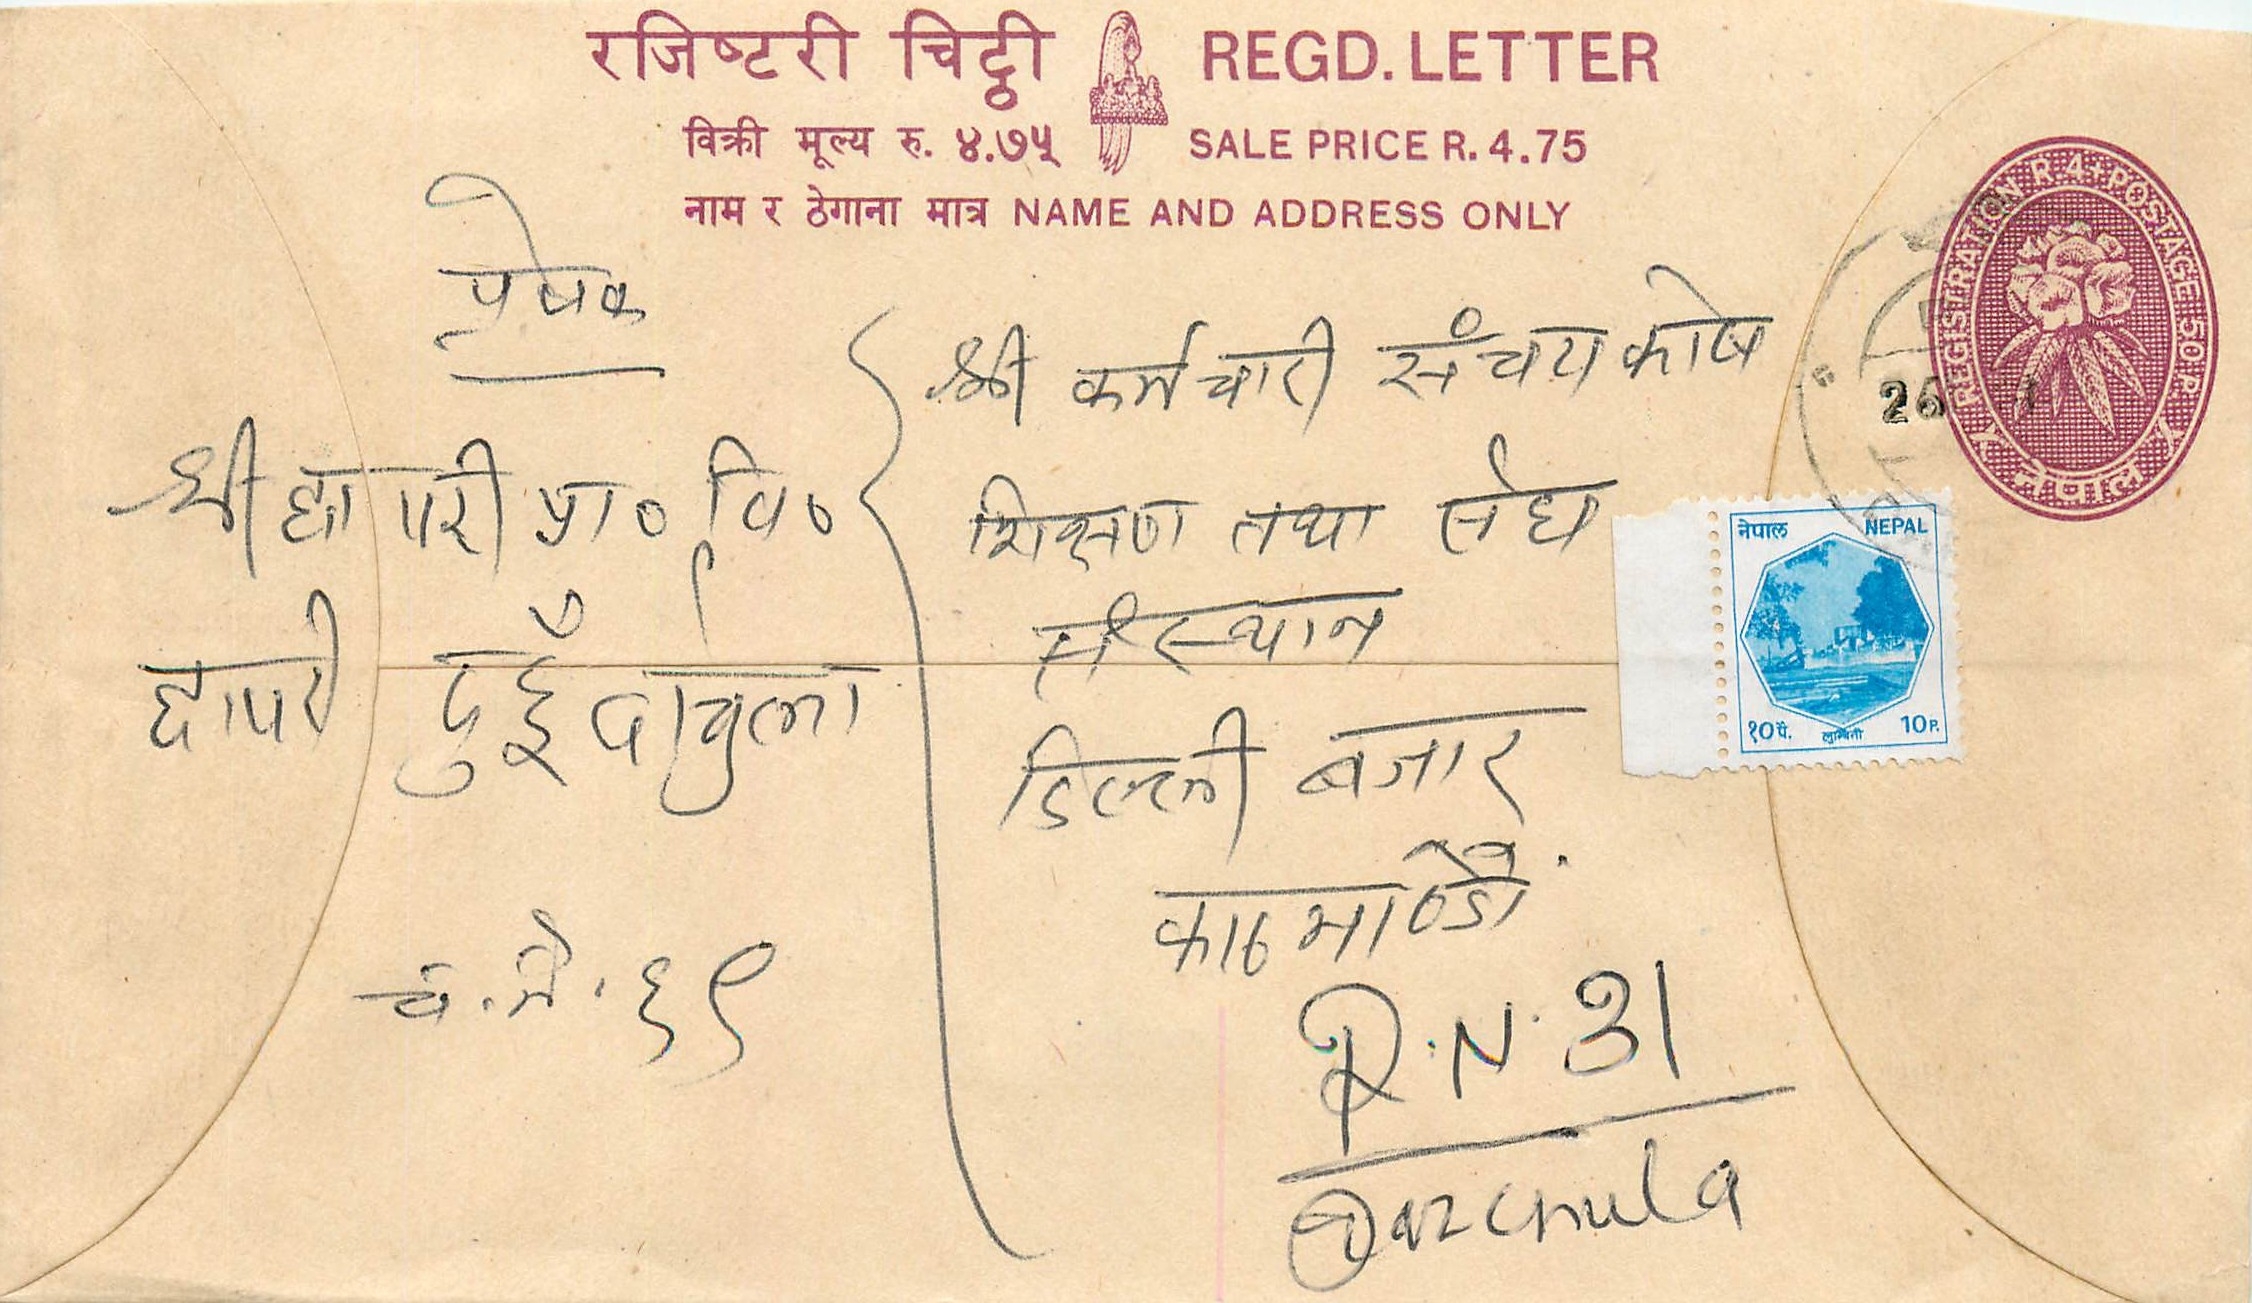 रजिष्टरी चिट्ठी REGD. LETTER
विक्री मूल्य रु. ४.७५ SALE PRICE R. 4.75
नाम र ठेगाना मात्र NAME AND ADDRESS ONLY
REGISTRATION R 4+POSTAGE 50 P.
नेपाल
प्रेषक
श्री छापरी प्रा० वि०
छापरी दुहुँ दार्चुला
च. नं. ६९
श्री कर्मचारी संचय कोष
शिक्षण तथा
संस्थान
डिल्ली बजार
काठमाण्डौ
R.N. 31
Darchula
26
नेपाल NEPAL
१० पै. लुम्बिनी 10 P.